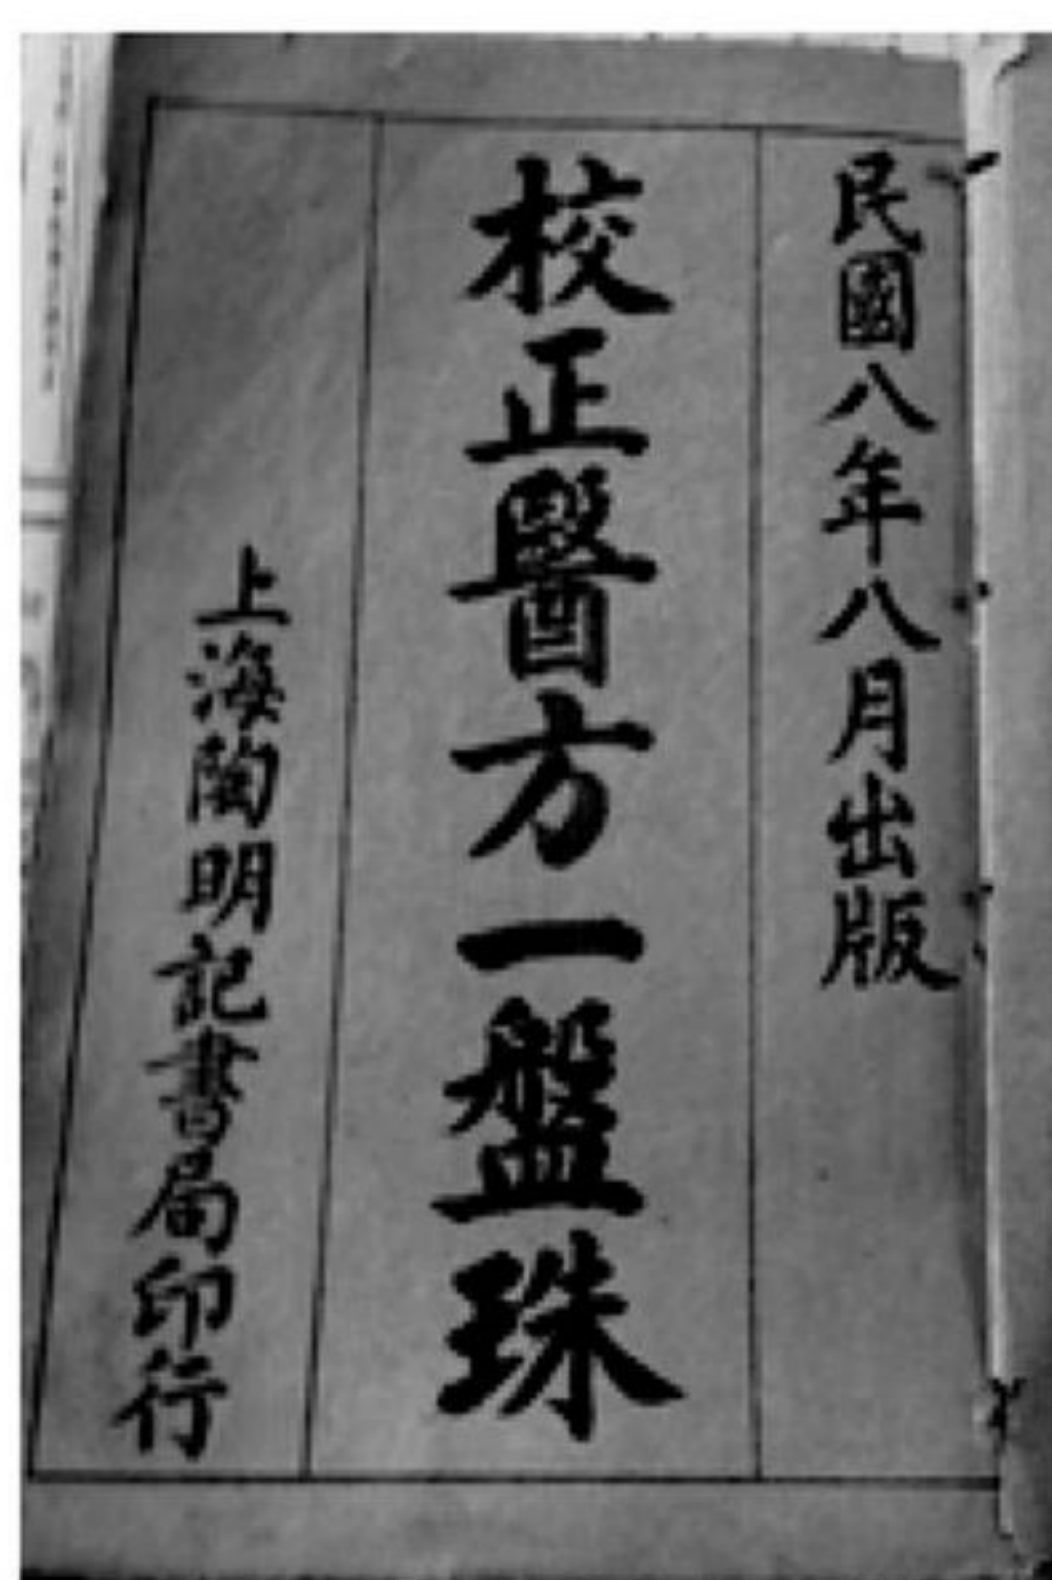 民國八年八月出版
校正醫方一盤珠
上海閬明記書局印行